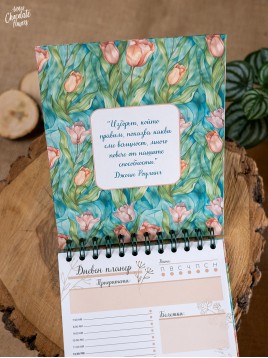 Chocolate
flowers
"Изборът, който
правим, показва каква
сме всъщност, много
повече от нашите
способности"
Джоан Роулинг
Дневен планер
Дата:
П В С Ч П С Н
Приоритети:
Бележки: